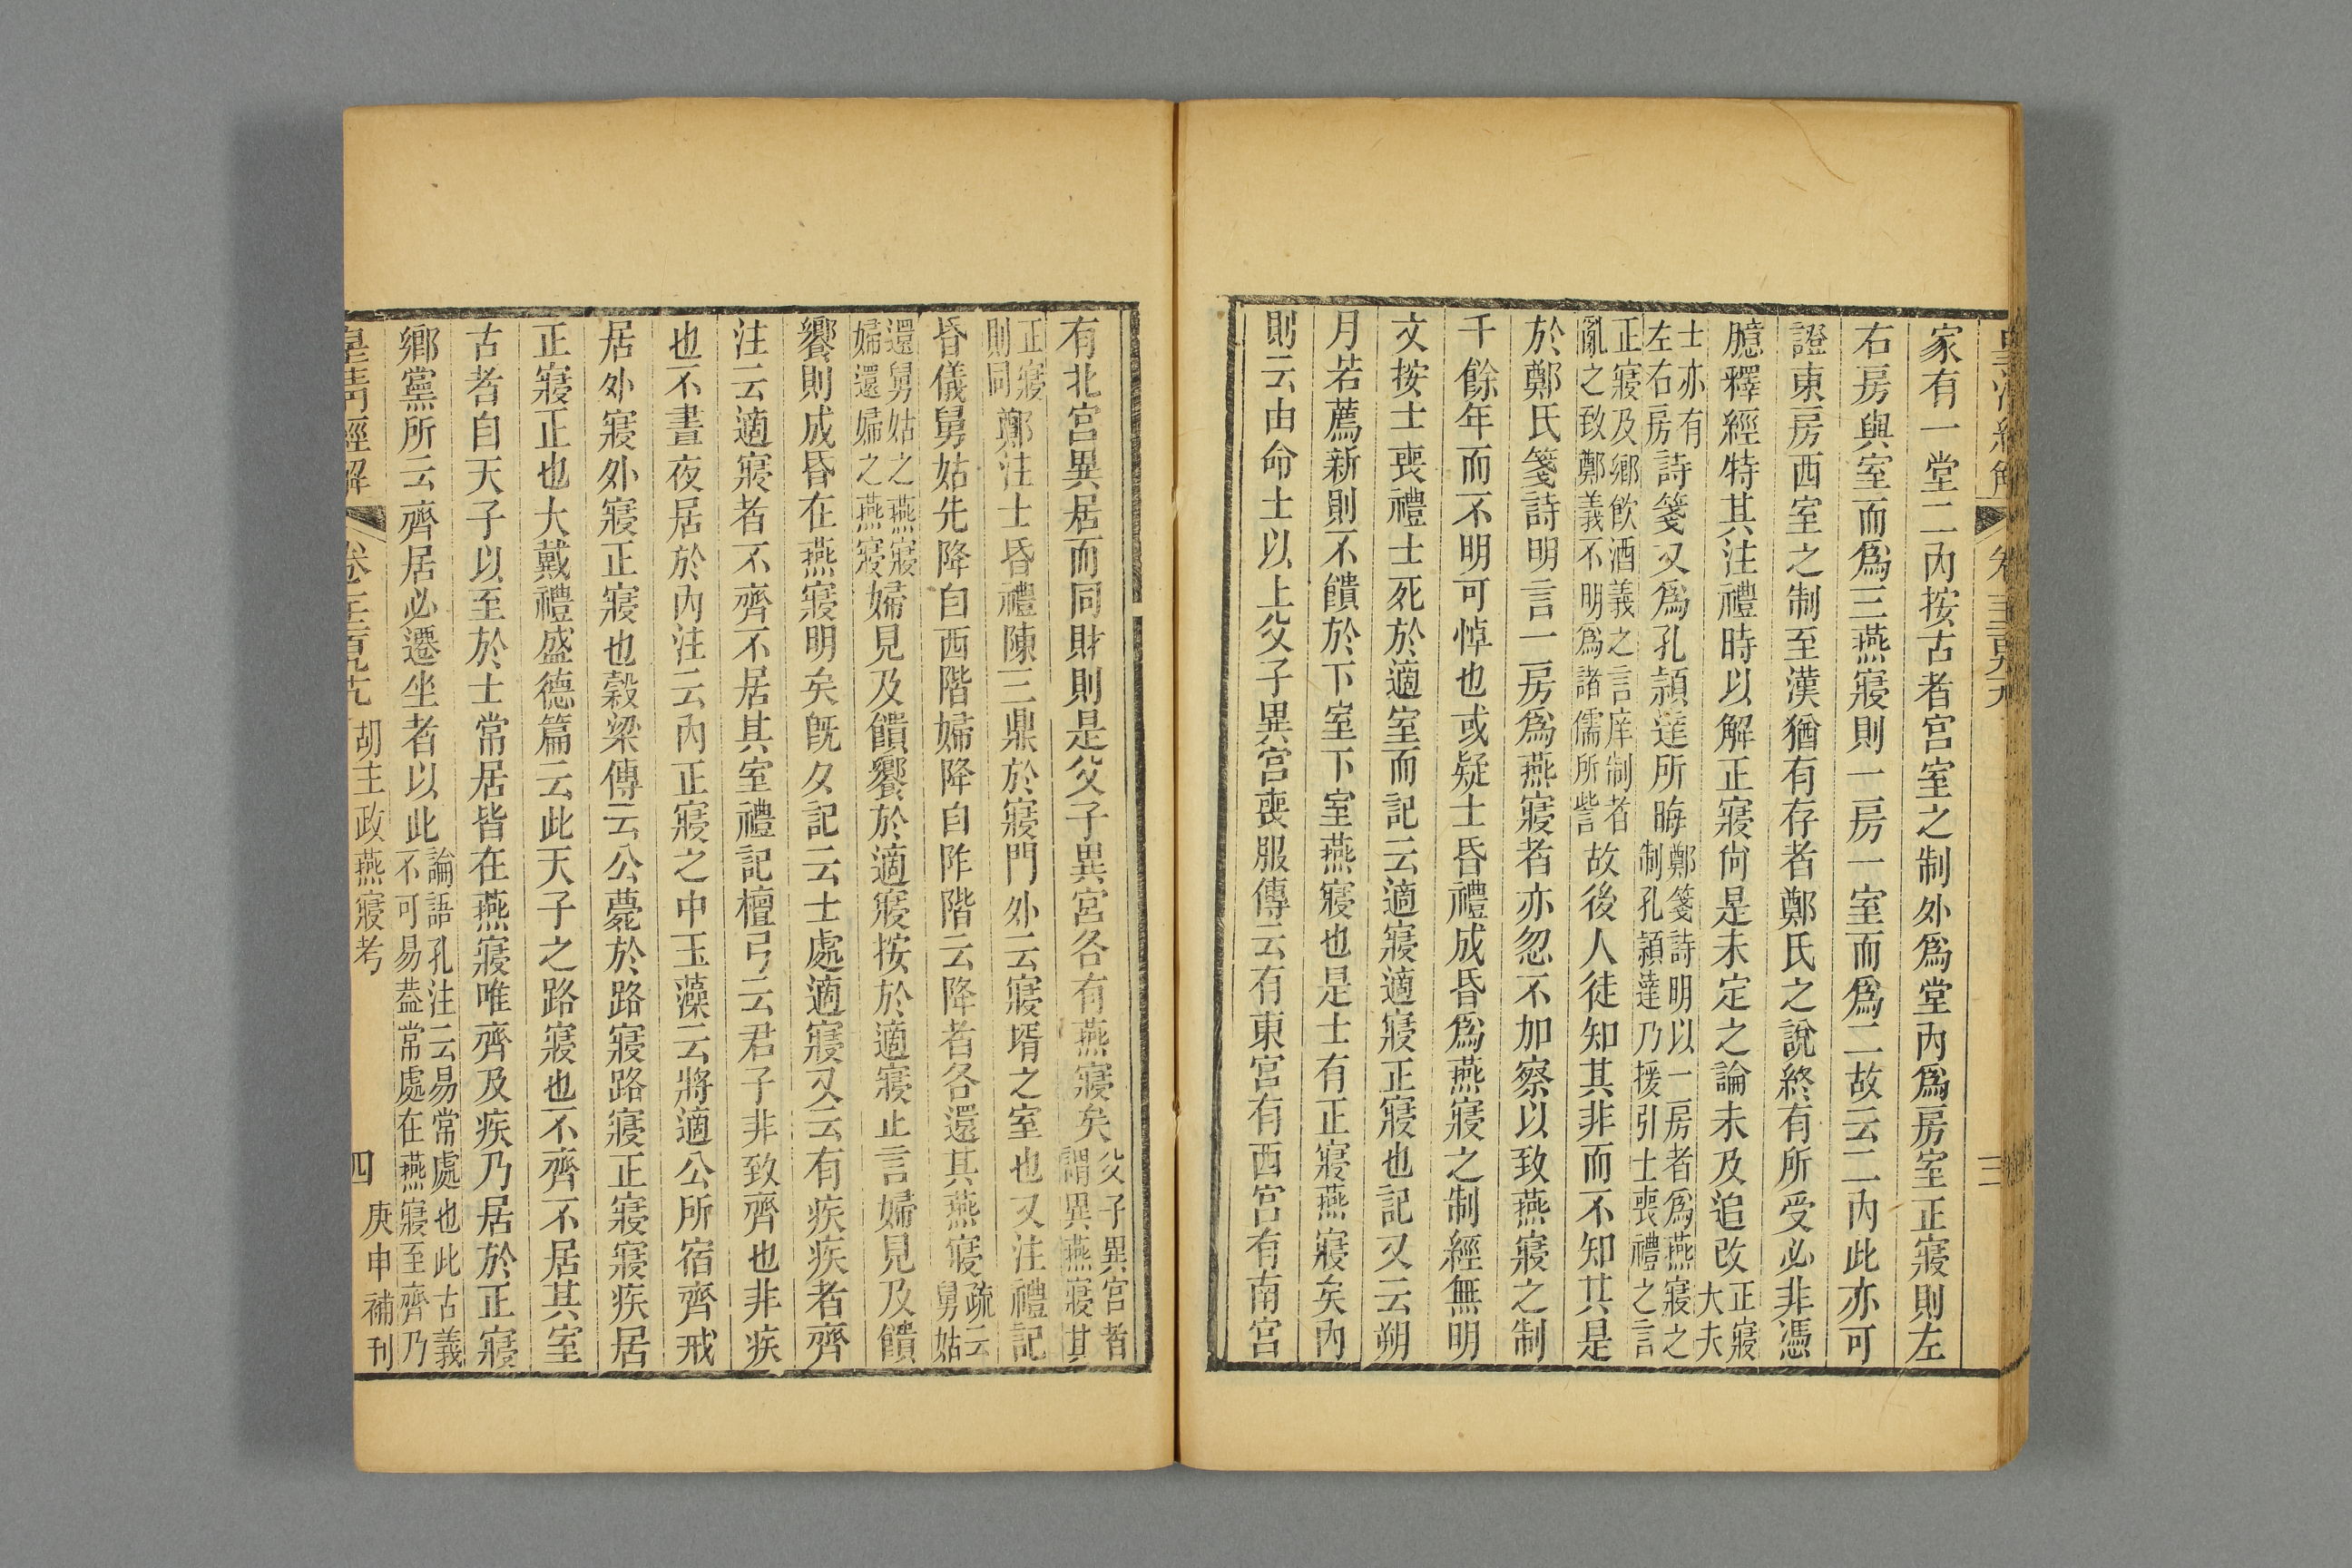 皇清經解
卷三
三
家有一堂二內按古者宮室之制外爲堂內爲房室正寢則左
右房與室而爲三燕寢則一房一室而爲二故云二內此亦可
證東房西室之制至漢猶有存者鄭氏之說終有所受必非憑
臆釋經特其注禮時以解正寢尙是未定之論未及追改正寢大夫
士亦有左右房詩箋又爲孔頴達所晦鄭箋詩明以一房者爲燕寢之制孔頴達乃援引士喪禮之言
正寢及鄉飮酒義之言庠制者亂之致鄭義不明爲諸儒所訾故後人徒知其非而不知其是
於鄭氏箋詩明言一房爲燕寢者亦忽不加察以致燕寢之制
千餘年而不明可悼也或疑士昏禮成昏爲燕寢之制經無明
文按士喪禮士死於適室而記云適寢適寢正寢也記又云朔
月若薦新則不饋於下室下室燕寢也是士有正寢燕寢矣內
則云由命士以上父子異宮喪服傳云有東宮有西宮有南宮
有北宮異居而同財則是父子異宮各有燕寢矣父子異宮者謂異燕寢其
正寢則同鄭注士昏禮陳三鼎於寢門外云寢壻之室也又注禮記
昏儀舅姑先降自西階婦降自阼階云降者各還其燕寢疏云舅姑
還舅姑之燕寢婦還婦之燕寢婦見及饋饗於適寢按於適寢止言婦見及饋
饗則成昏在燕寢明矣旣夕記云士處適寢又云有疾疾者齊
注云適寢者不齊不居其室禮記檀弓云君子非致齊也非疾
也不晝夜居於內注云內正寢之中玉藻云將適公所宿齊戒
居外寢外寢正寢也榖梁傳云公薨於路寢路寢正寢寢疾居
正寢正也大戴禮盛德篇云此天子之路寢也不齊不居其室
古者自天子以至於士常居皆在燕寢唯齊及疾乃居於正寢
鄉黨所云齊居必遷坐者以此論語孔注云易常處也此古義不可易葢常處在燕寢至齊乃
皇清經解
卷三百九
胡主政燕寢考
四
庚申補刊